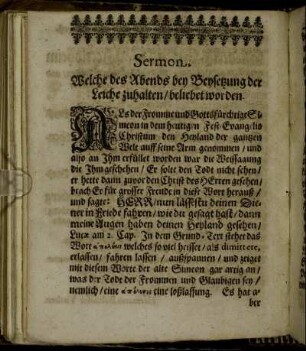 Sermon.
Welche des Abends bey Beysetzung der
Leiche zuhalten / beliebet worden.
ALs der Fromme und Gottsfürchtige Si-
meon in dem heutigen Fest-Evangelio
Christum den Heyland der gantzen
Welt auff seine Arm genommen / und
also an Ihm erfüllet worden war die Weissagung
die Ihm geschehen / Er solte den Todt nicht sehen /
er hette dann zuvor den Christ des HErren gesehen /
brach Er für grosser Freude in diese Wort herauß /
und sagte: HERR / nun lässestu deinen Die-
ner in Friede fahren / wie du gesagt hast / dann
meine Augen haben deinen Heyland gesehen /
Luc. am 2. Cap. In dem Grund-Text stehet das
Wort ἀπολύειν welches so viel heisset / als dimittere,
erlassen / fahren lassen / außspannen / und zeiget
mit diesem Worte der alte Simeon gar artig an /
was der Todt der Frommen und Glaubigen sey /
nemlich / eine ἀπόλυσις eine loßlassung. Es hat a-
ber